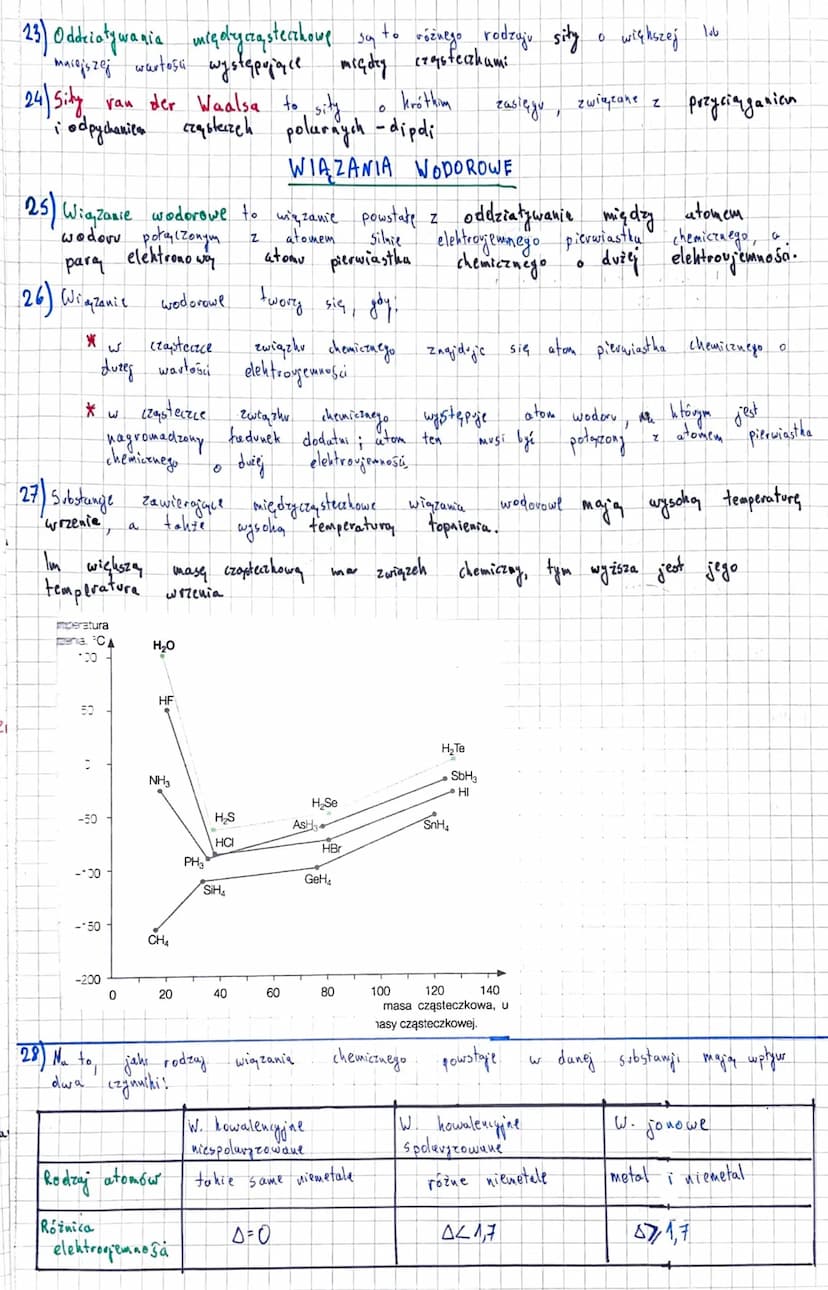 23) Oddziaływania międzycząsteczkowe są to różnego rodzaju siły o większej lub
mniejszej wartości występujące między cząsteczkami
24) Siły van der Waalsa to siły o krótkim zasięgu, związane z przyciąganiem
i odpychaniem cząsteczek polarnych - dipoli
WIĄZANIA WODOROWE
25) Wiązanie wodorowe to wiązanie powstałe z oddziaływania między atomem
wodoru połączonym z atomem silnie elektroujemnego pierwiastka chemicznego, a
parą elektronową atomu pierwiastka chemicznego o dużej elektroujemności.
26) Wiązanie wodorowe tworzy się, gdy:
* w cząsteczce związku chemicznego znajduje się atom pierwiastka chemicznego o
dużej wartości elektroujemności
* w cząsteczce związku chemicznego występuje atom wodoru, na którym jest
nagromadzony ładunek dodatni; atom ten musi być połączony z atomem pierwiastka
chemicznego o dużej elektroujemności
27) Substancje zawierające międzycząsteczkowe wiązania wodorowe mają wysoką temperaturę
wrzenia, a także wysoką temperaturą topnienia.
Im większą masę cząsteczkową ma związek chemiczny, tym wyższa jest jego
temperatura wrzenia
mperatura
°C
H₂O
50
HF
NH₃
H₂Te
SbH₃
HI
-50
H₂S
H₂Se
AsH₃
SnH₄
HCl
HBr
PH₃
SiH₄
GeH₄
CH₄
-200
0 20 40 60 80 100 120 140
masa cząsteczkowa, u
masy cząsteczkowej.
28) Na to, jaki rodzaj wiązania chemicznego powstaje w danej substancji mają wpływ
dwa czynniki:
W. kowalencyjne niespolaryzowane
W. kowalencyjne spolaryzowane
W. jonowe
Rodzaj atomów takie same niemetale różne niemetele metal i niemetal
Różnica elektroujemności Δ=0 Δ<1,7 Δ⩾1,7